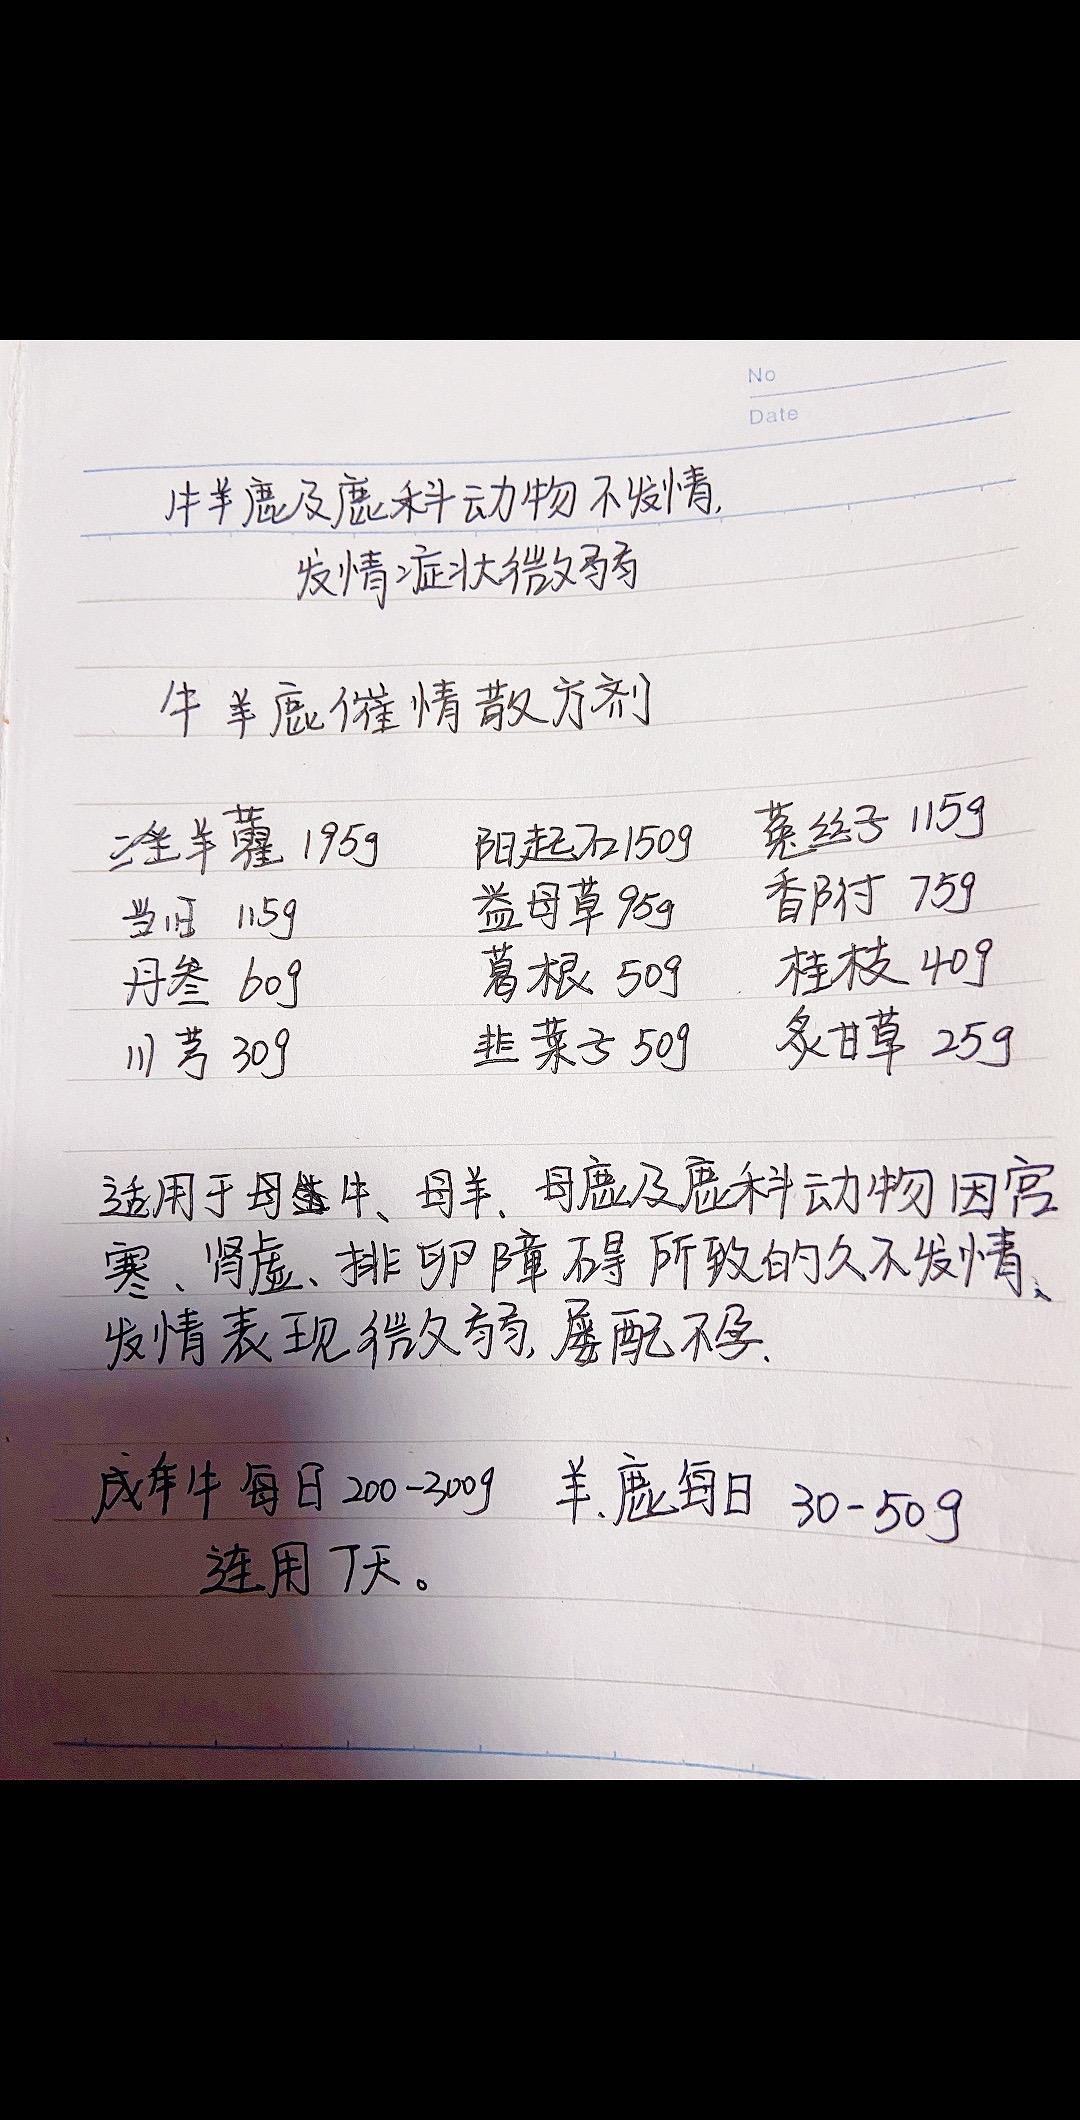 No
Date
牛羊鹿及鹿科动物不发情,
发情症状微弱
牛羊鹿催情散方剂
淫羊藿 195g 阳起石150g 菟丝子 115g
当归 115g 益母草 95g 香附 75g
丹参 60g 葛根 50g 桂枝 40g
川芎 30g 韭菜子 50g 炙甘草 25g
适用于母牛、母羊、母鹿及鹿科动物因宫
寒、肾虚、排卵障碍所致的久不发情、
发情表现微弱,屡配不孕.
成年牛每日200-300g 羊.鹿每日 30-50g
连用7天。